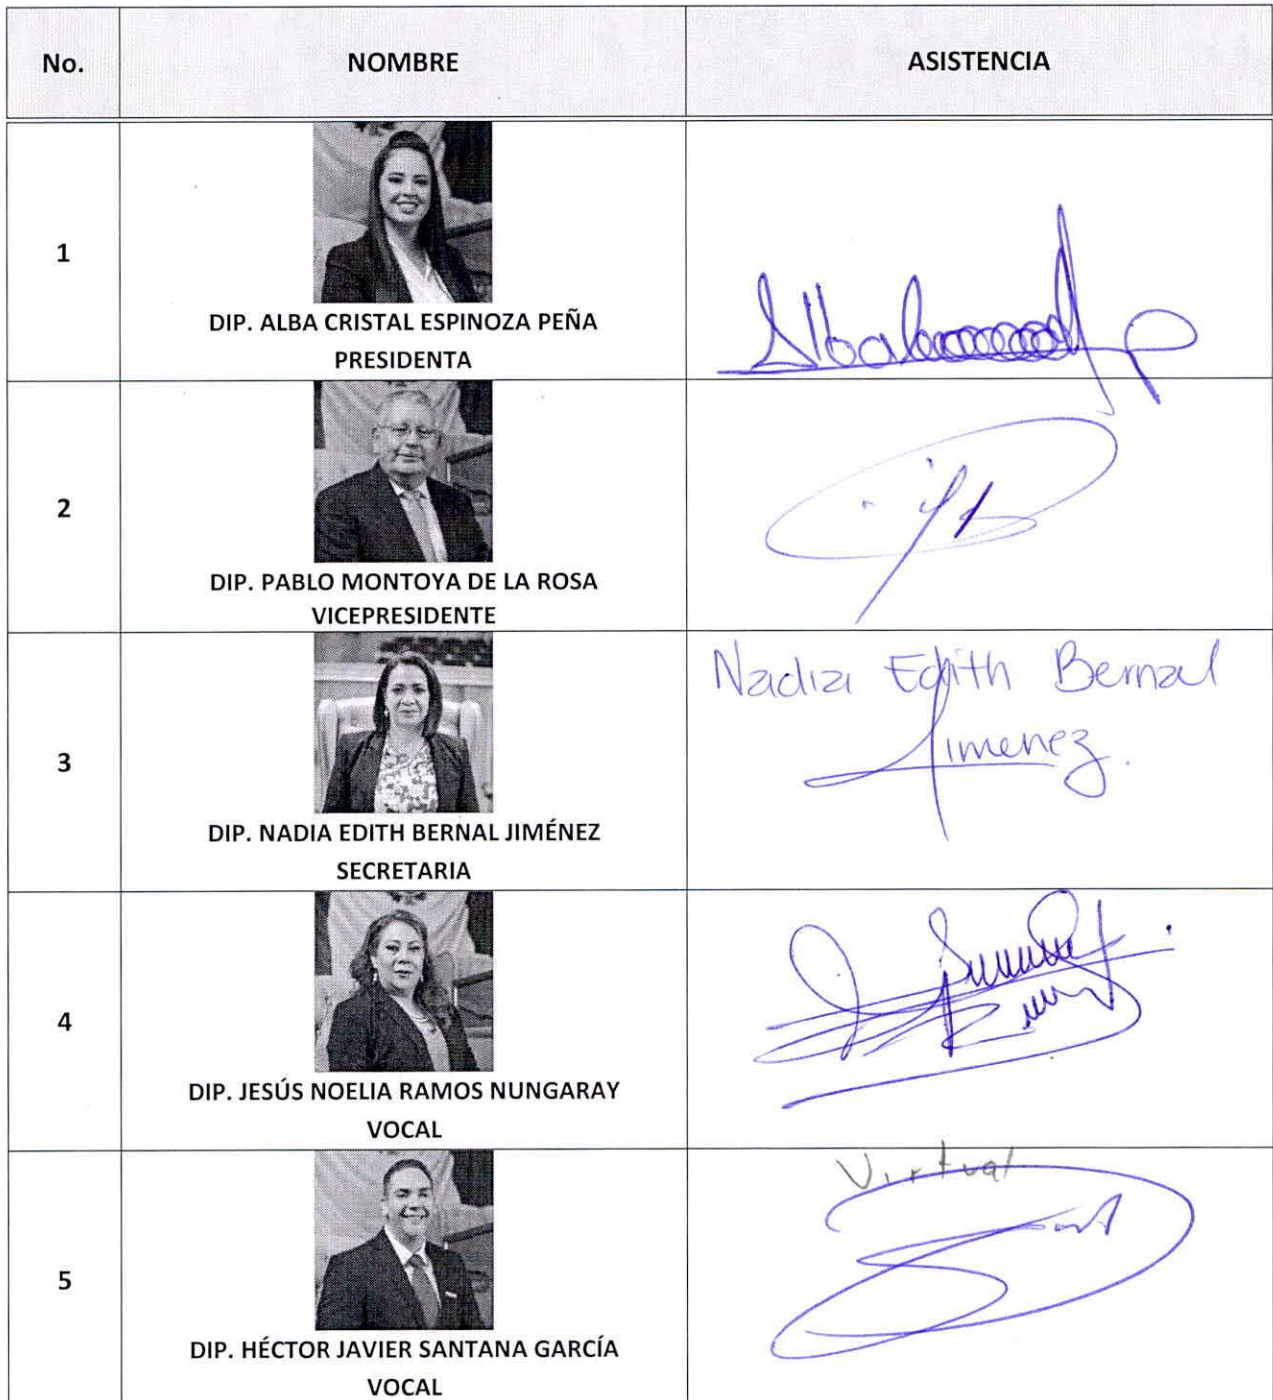 No. NOMBRE ASISTENCIA
1
DIP. ALBA CRISTAL ESPINOZA PEÑA
PRESIDENTA
2
DIP. PABLO MONTOYA DE LA ROSA
VICEPRESIDENTE
Nadia Edith Bernal
Jimenez.
3
DIP. NADIA EDITH BERNAL JIMÉNEZ
SECRETARIA
4
DIP. JESÚS NOELIA RAMOS NUNGARAY
VOCAL
Virtual
5
DIP. HÉCTOR JAVIER SANTANA GARCÍA
VOCAL